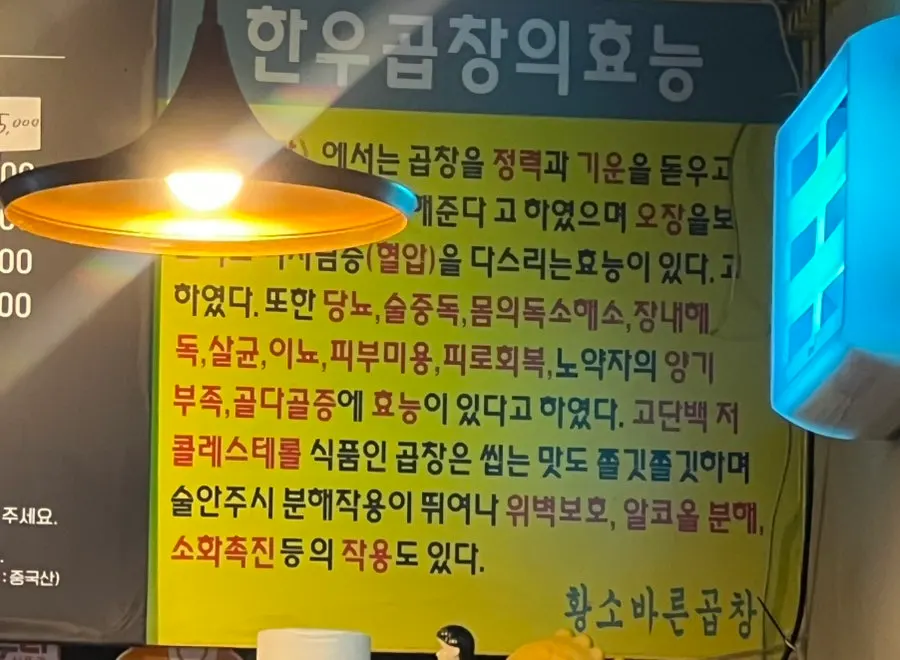 한우곱창의효능
에서는 곱창을 정력과 기운을 돋우고
해준다 고 하였으며 오장을보
(혈압)을 다스리는효능이 있다.고
하였다. 또한 당뇨,술중독,몸의독소해소,장내해
독,살균,이뇨,피부미용,피로회복,노약자의 양기
부족,골다골증에 효능이 있다고 하였다. 고단백 저
콜레스테롤 식품인 곱창은 씹는 맛도 쫄깃쫄깃하며
술안주시 분해작용이 뛰여나 위벽보호, 알코올 분해,
소화촉진등의 작용도 있다.
황소바른곱창
5,000
00
00
주세요.
: 중국산)